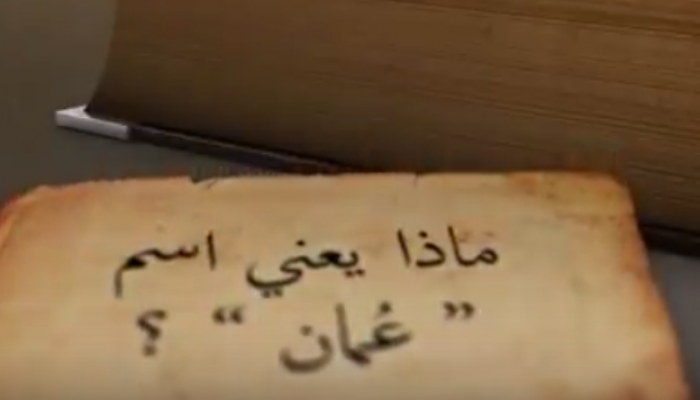 ماذا يعني اسم
” عُمان “ ؟